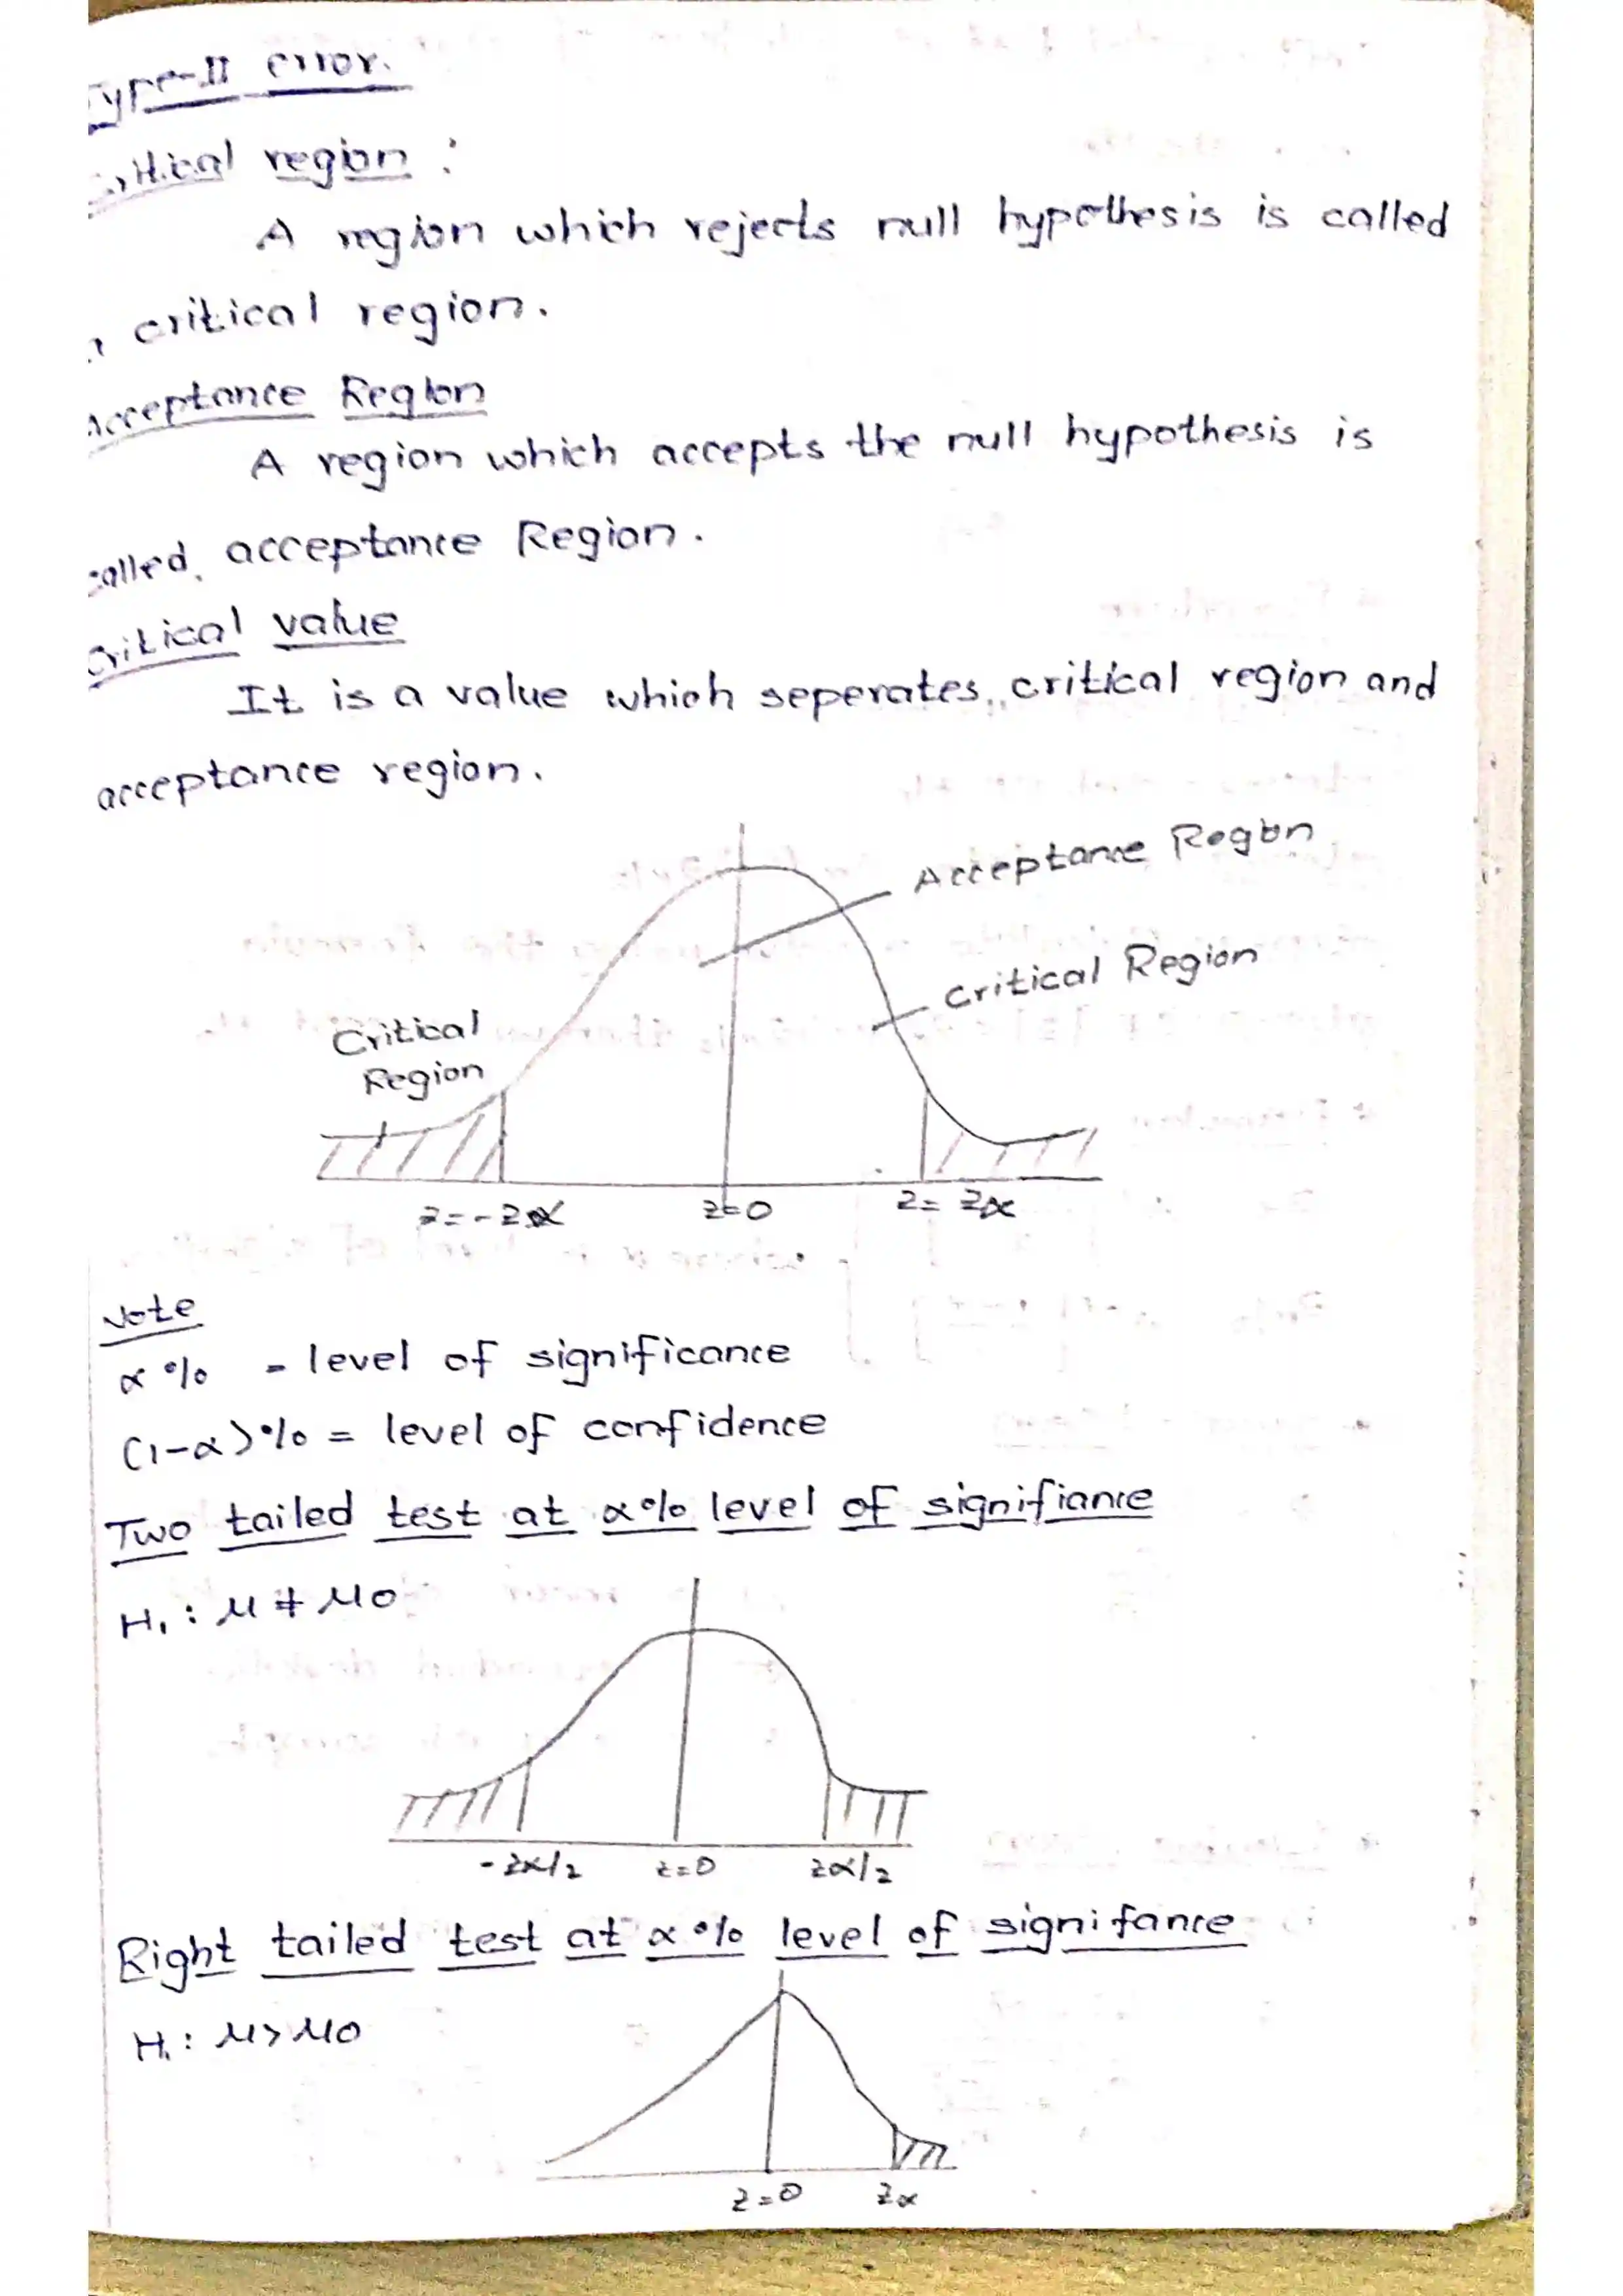 Type-II error.
Critical region :
A region which rejects null hypothesis is called
a critical region.
Acceptance Region
A region which accepts the null hypothesis is
called, acceptance Region.
Critical value
It is a value which seperates, critical region and
acceptance region.
Acceptance Region
Critical Region
Critical
Region
z=-zα
z=0
z= zα
Note
α % = level of significance
(1-α)% = level of confidence
Two tailed test at α% level of signifiance
H₁ : μ ≠ μ0
-zα/2
z=0
zα/2
Right tailed test at α% level of signifance
H₁ : μ > μ0
z=0
zα